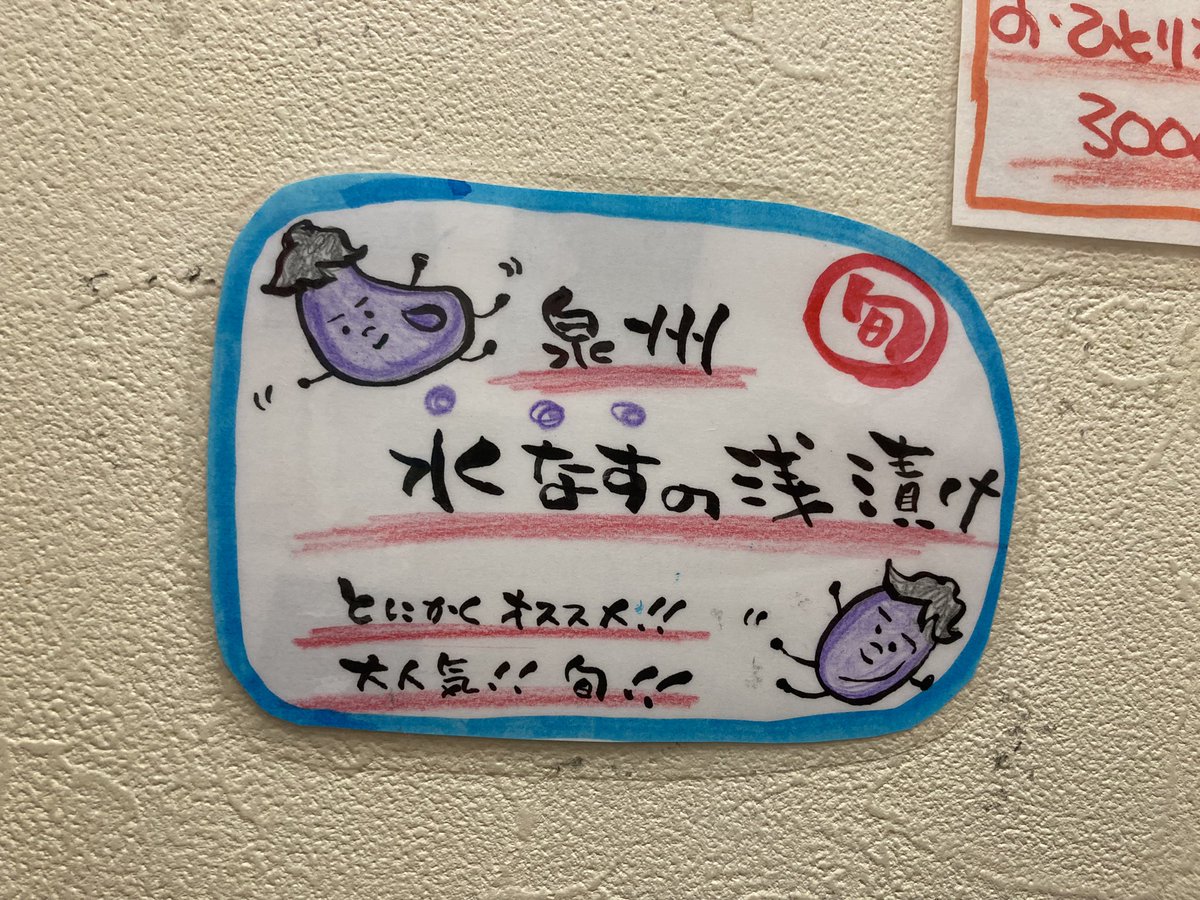 泉州
旬
水なすの浅漬け
とにかくオススメ!!
大人気!! 旬!!
お・ひとり
3000